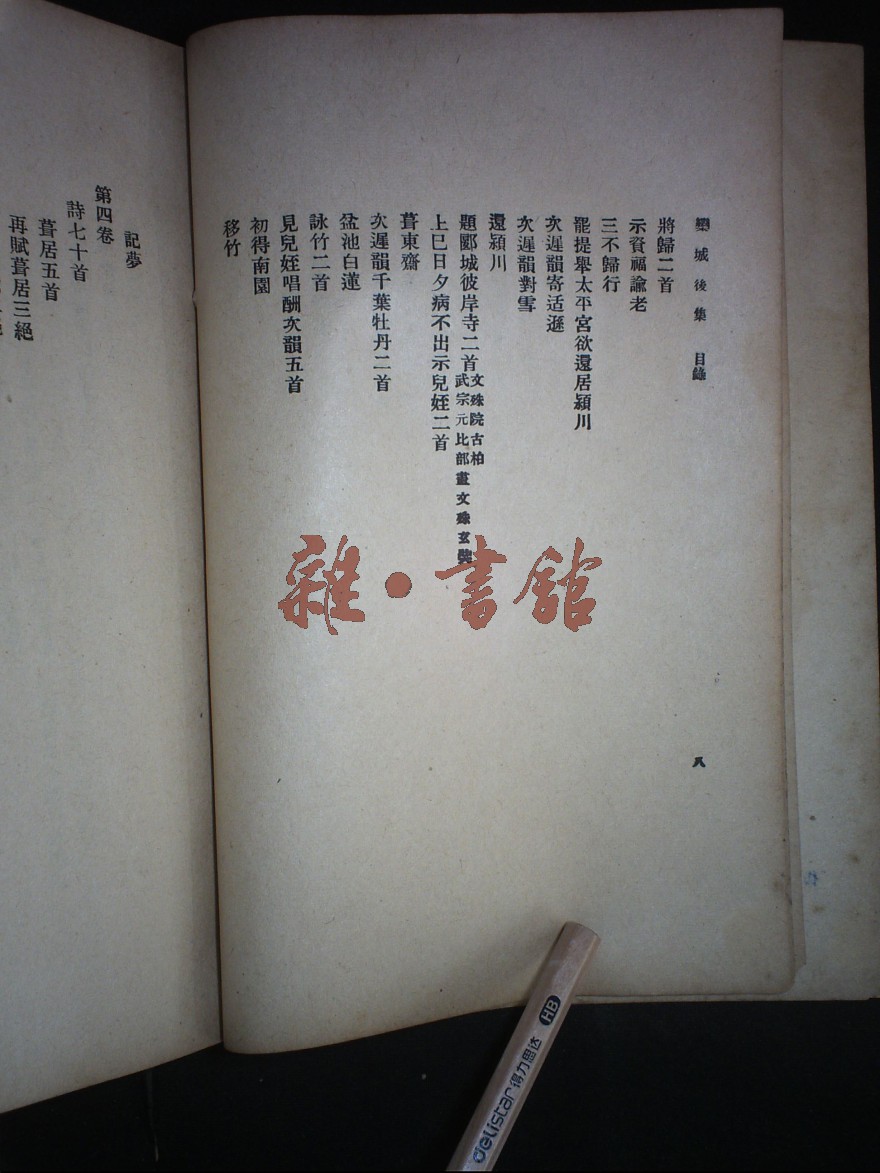 欒城後集　目錄
八
將歸二首
示資福諭老
三不歸行
罷提舉太平宮欲還居潁川
次遲韻寄适遜
次遲韻對雪
還潁川
題郾城彼岸寺二首文殊院古柏
武宗元比部畫文殊玄奘
上巳日夕病不出示兒姪二首
葺東齋
次遲韻千葉牡丹二首
盆池白蓮
詠竹二首
見兒姪唱酬次韻五首
初得南園
移竹
記夢
第四卷
詩七十首
葺居五首
再賦葺居三絕
雜·書館
delistar得力思达 HB